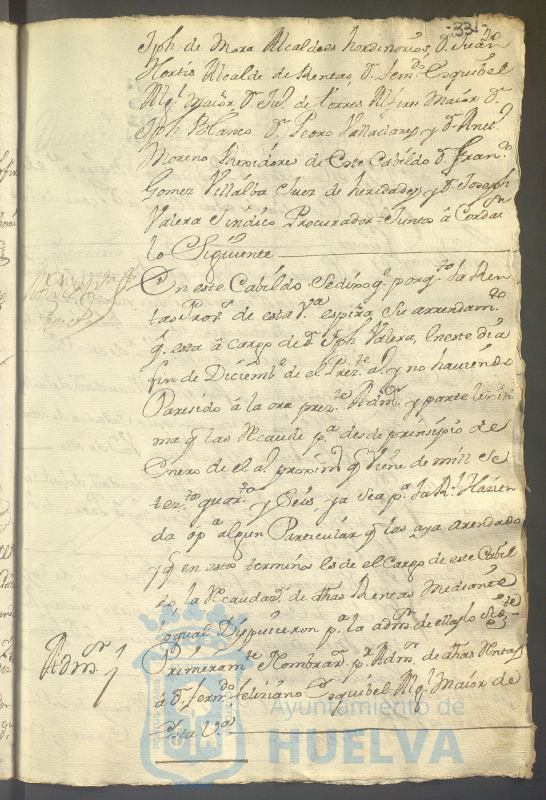 331
Jph de Mora Alcaldes hordinorios, Dn Juan
Hortis Alcalde de Rentas, Dn Ferndo Esquibel
Algl Maior Dn Ju. de torres Alferes Maior Dn
Jph Blanco Dn Pedro Valladares y Dn Antto
Moreno Rexidores de este Cabildo Dn Frando
Gomez Villalba Juez de heridades y Dn Joseph
Valera Sindico Procurador = Juntos â Cordar
lo Siguiente
En este Cabildo Se dijo qe porqto la Ren
tas Provs de esta Va espira Su arrendamto
q. esta â cargo de Dn Jph Valera, en este dia
fin de Diciembe de el Preste a. y no haviendo
Paresido â la ora preste Admor y parte lexiti
ma q las Recaude pa desde prinsipio de
Enero de el a. proximo q Viene de mill Se
teztos quarta y Seis, ya Sea pa la Rl Hasien
da ô pa algun Particular q las aya arendado
y q en estos terminos es de el Cargo de este Cabil
do la Recaudazn de dhas Rentas Mediante
loqual Dispusieron pa la admon de ellas lo Sigte
Admor
Primeramte Nombraron pr Admor de dhas Rentas
â Dn Ferndo feliziano Esquibel Algl Maior de
Esta Va
Ayuntamiento de
HUELVA